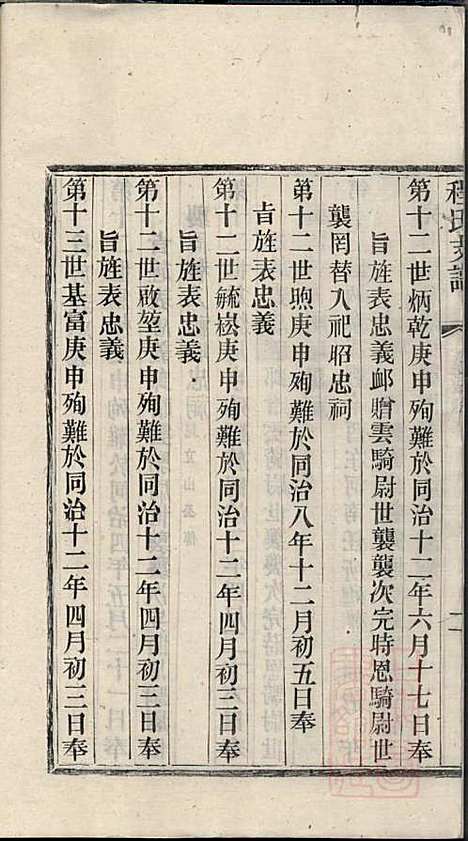 程氏支譜
第十二世炳乾庚申殉難於同治十二年六月十七日奉
旨旌表忠義卹贈雲騎尉世襲襲次完時恩騎尉世
襲罔替入祀昭忠祠
第十二世煦庚申殉難於同治八年十二月初五日奉
旨旌表忠義
第十二世毓崧庚申殉難於同治十二年四月初三日奉
旨旌表忠義
第十二世啟堃庚申殉難於同治十二年四月初三日奉
旨旌表忠義
第十三世基富庚申殉難於同治十二年四月初三日奉